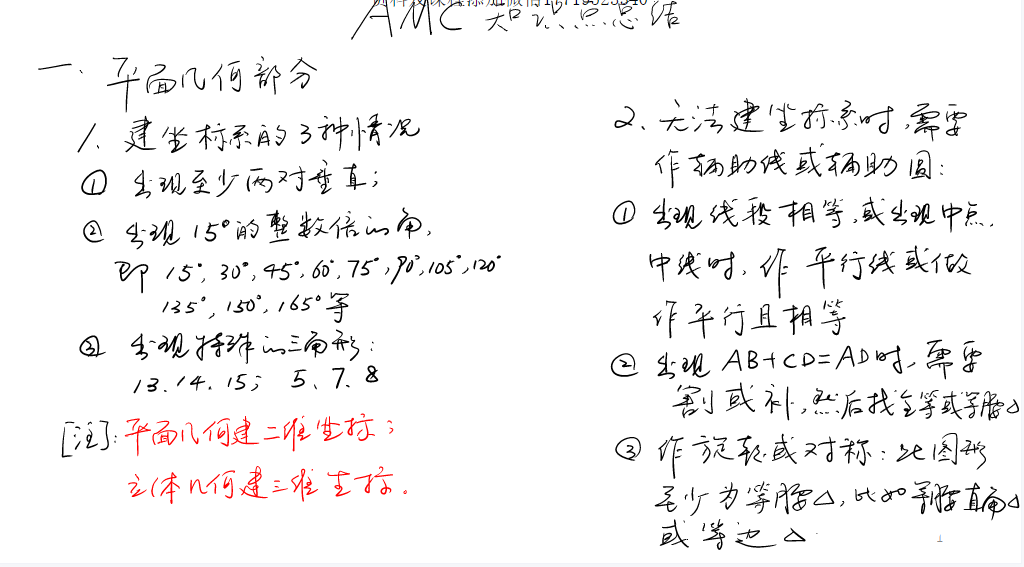 AMC 知识点总结
一. 平面几何部分
1. 建坐标系的3种情况
① 出现至少两对垂直;
② 出现15°的整数倍的角,
即 15°, 30°, 45°, 60°, 75°, 90°, 105°, 120°
135°, 150°, 165° 等
③ 出现特殊的三角形:
13. 14. 15; 5、7、8
[注]: 平面几何建二维坐标;
立体几何建三维坐标.
2、无法建坐标系时,需要
作辅助线或辅助圆:
① 出现线段相等,或出现中点.
中线时, 作平行线或做
作平行且相等
② 出现 AB+CD=AD时,需要
割或补,然后找全等或等腰△
③ 作旋转或对称: 此图形
至少为等腰△, 比如等腰直角△
或等边△.
1